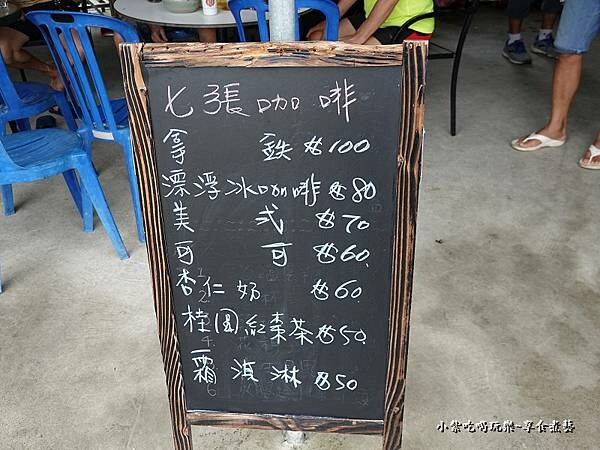 七張咖啡
拿鉄 $100
漂浮冰咖啡 $80
美式 $70
可可 $60
杏仁奶 $60
桂圓紅棗茶 $50
霜淇淋 $50
小紫吃喝玩樂~享食煮藝